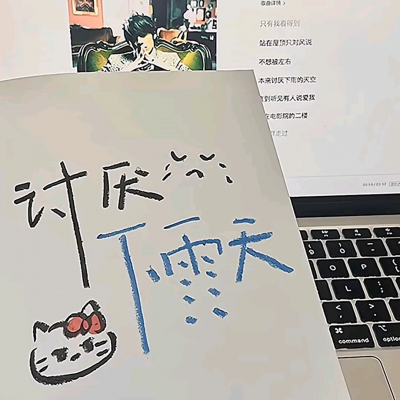 歌曲详情
只有找着得到
站在屋顶只对风说
不想被左右
本来讨厌下雨的天空
直到听见有人说爱我
在电影院的二楼
讨厌
下雨天
command
option